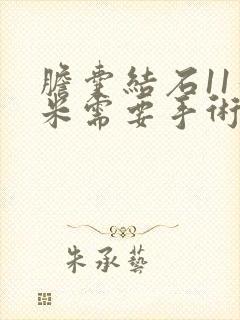 膽囊結石11
米需要手術
朱承藝